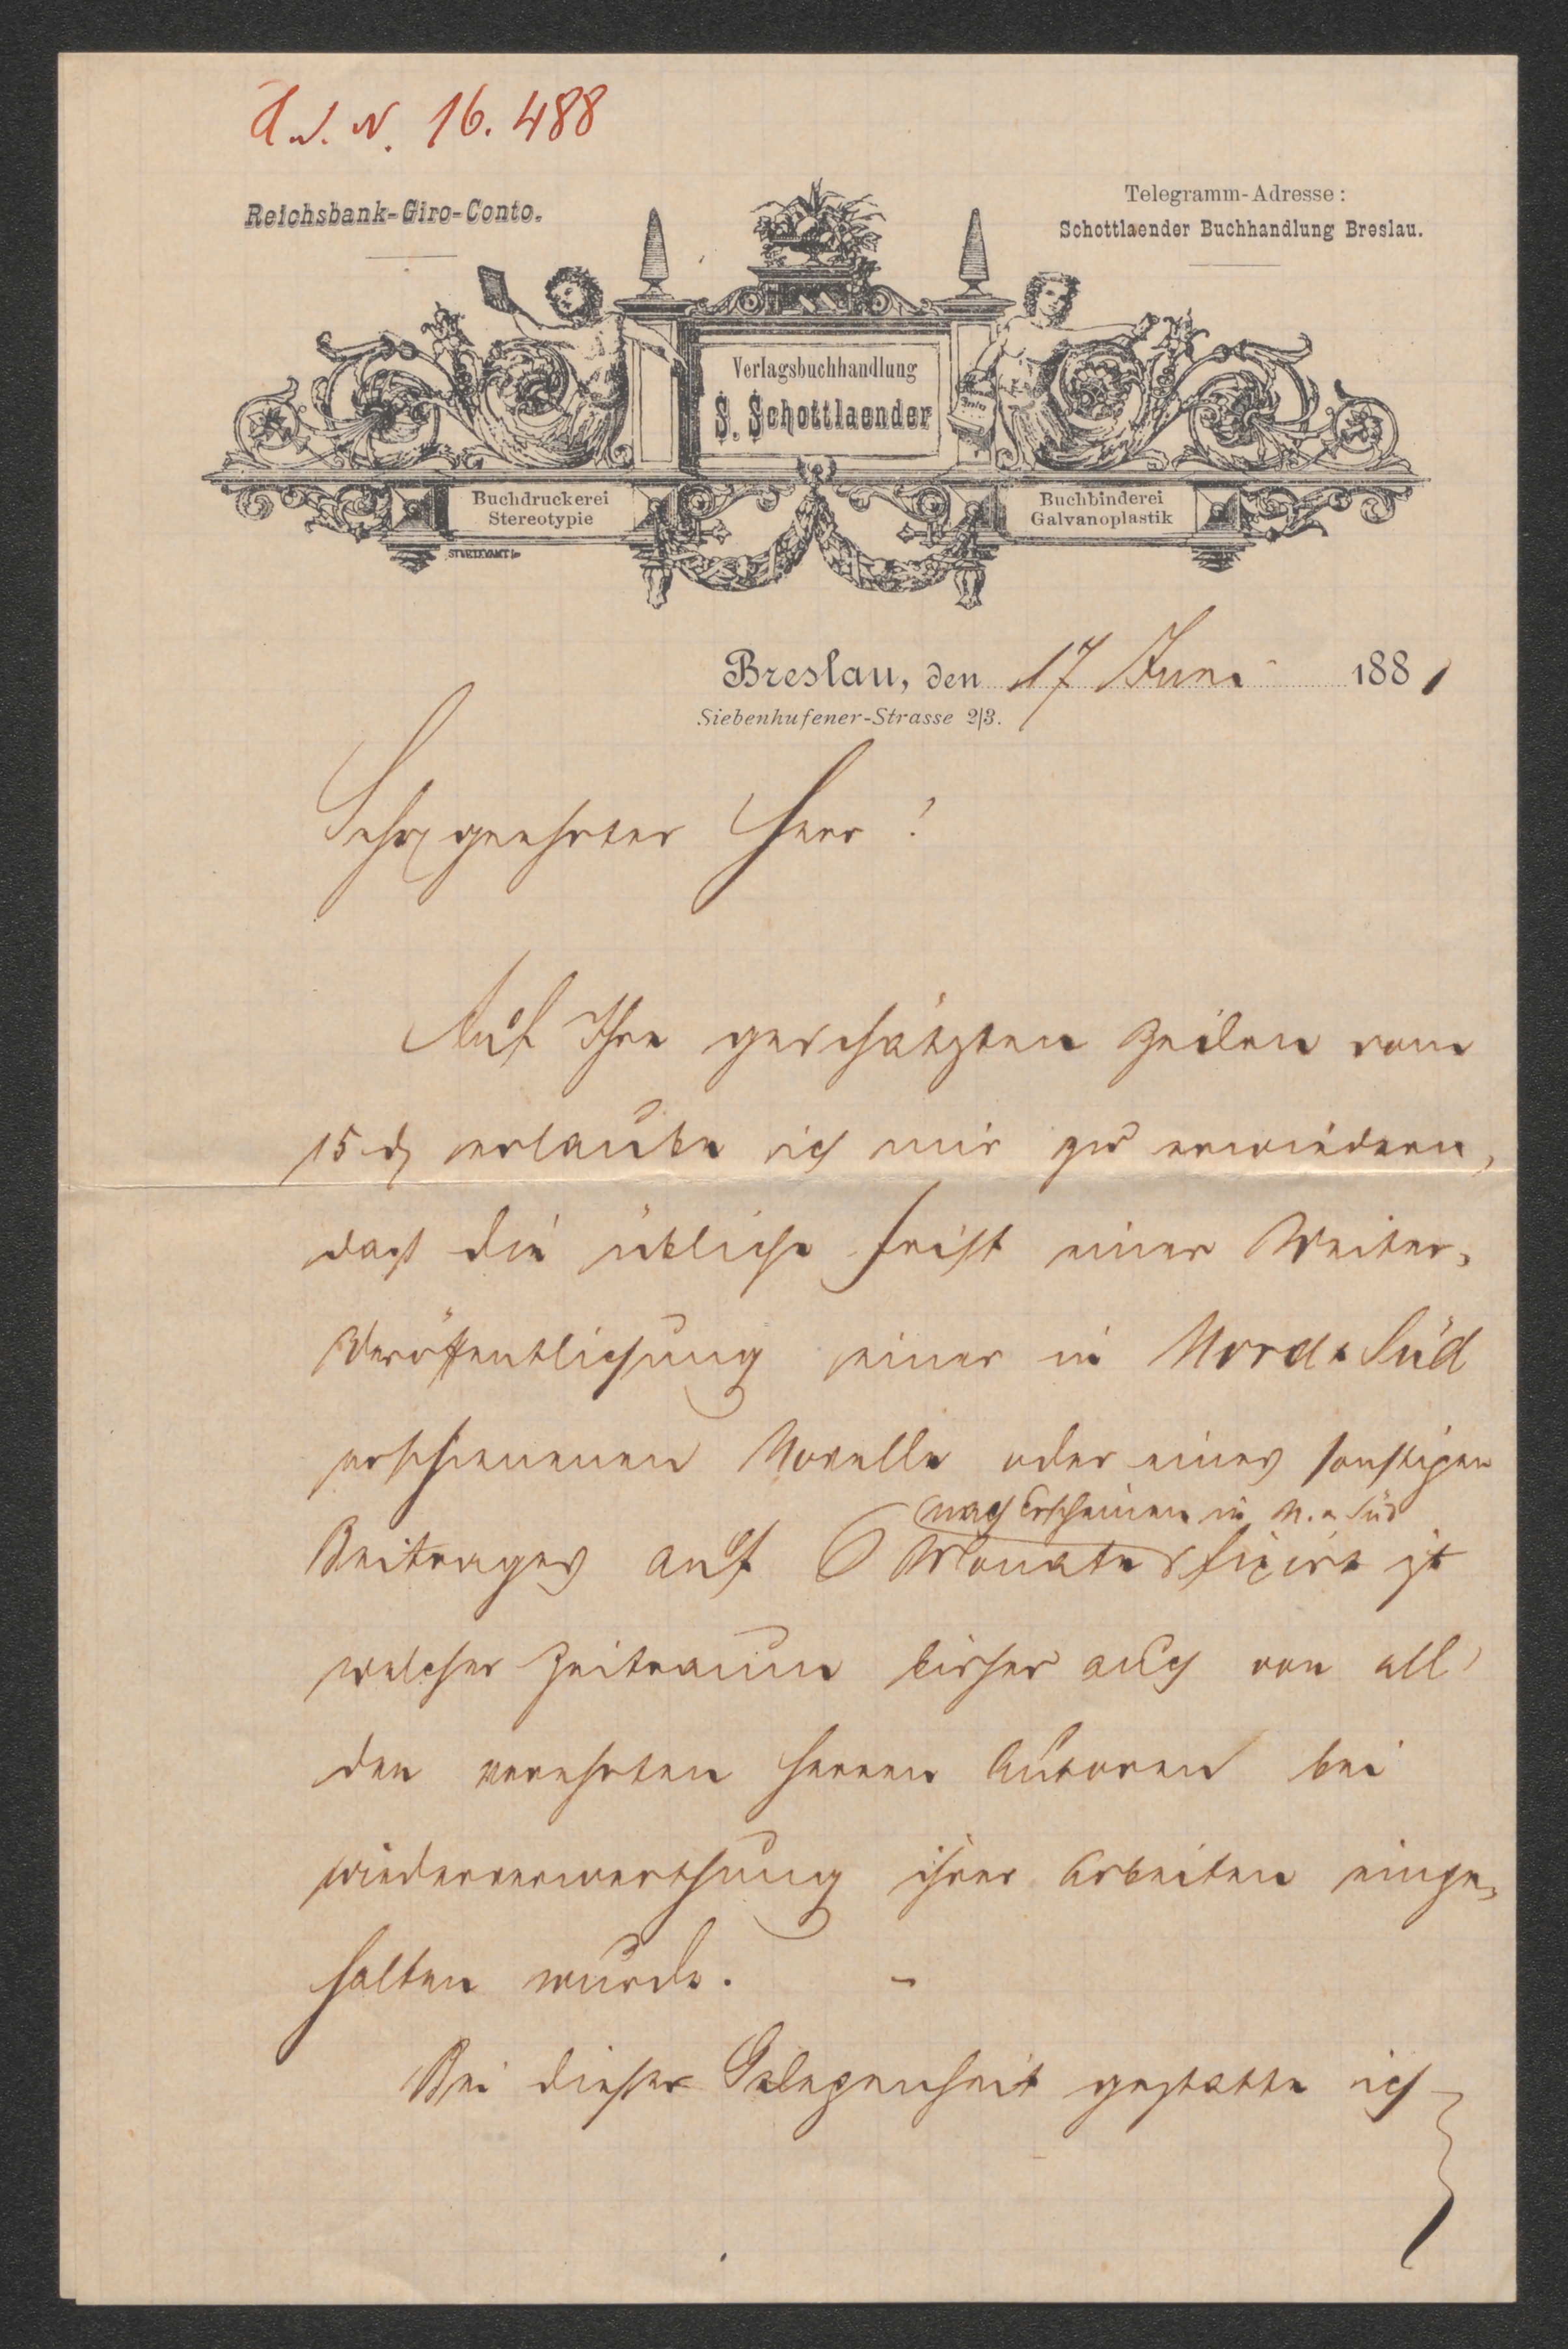 A. J. N. 16.488
Reichsbank-Giro-Conto.
Telegramm-Adresse:
Schottlaender Buchhandlung Breslau.
Verlagsbuchhandlung
S. Schottlaender
Buchdruckerei
Stereotypie
Buchbinderei
Galvanoplastik
Breslau, den 17 Juni 1881
Siebenhufener-Strasse 2|3.
Sehr geehrter Herr!
Auf Ihre geschätzten Zeilen vom
15 d. erlaube ich mir zu erwiedern,
daß die übliche Frist einer Weiter-
Veröffentlichung einer in Nord & Süd
erschienenen Novelle oder eines sonstigen
nach Erscheinen in N. u Süd
Beitrages auf 6 Monate fixirt ist
welcher Zeitraum bisher auch von all'
den verehrten Herren Autoren bei
Wiederverwerthung ihrer Arbeiten einge-
halten wurde. –
Bei dieser Gelegenheit gestatte ich